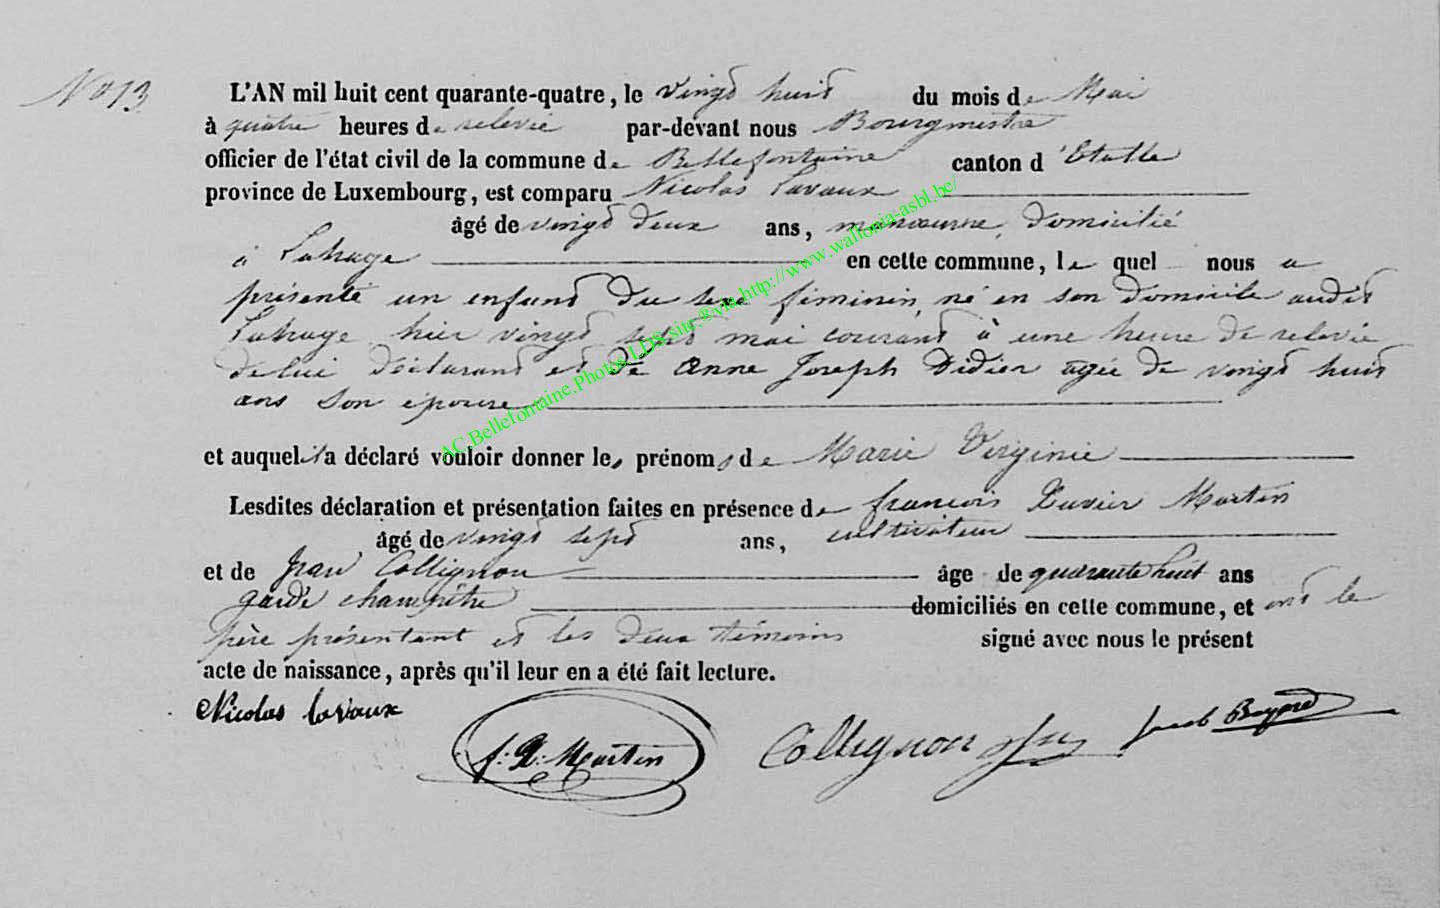 No 13
L'AN mil huit cent quarante-quatre, le vingt huit du mois de Mai
à quatre heures de relevée par-devant nous Bourgmestre
officier de l'état civil de la commune de Bellefontaine canton d'Etalle
province de Luxembourg, est comparu Nicolas Lavaux
âgé de vingt deux ans, manoeuvre, domicilié
à Lahage en cette commune, le quel nous a
présenté un enfant du sexe féminin, né en son domicile audit
Lahage hier vingt sept mai courant à une heure de relevée
de lui déclarant et de Anne Joseph Didier agée de vingt huit
ans son épouse
et auquel il a déclaré vouloir donner les prénoms de Marie Virginie
Lesdites déclaration et présentation faites en présence de françois Xavier Martin
âgé de vingt sept ans, cultivateur
et de Jean Collignon âge de quarante huit ans
garde champêtre domiciliés en cette commune, et ont le
père présentant et les deux témoins signé avec nous le présent
acte de naissance, après qu'il leur en a été fait lecture.
Nicolas lavaux f: X: Martin Collignon Jacob
AC.Bellefontaine.Photos LDS site ®via http://www.wallonia-asbl.be/